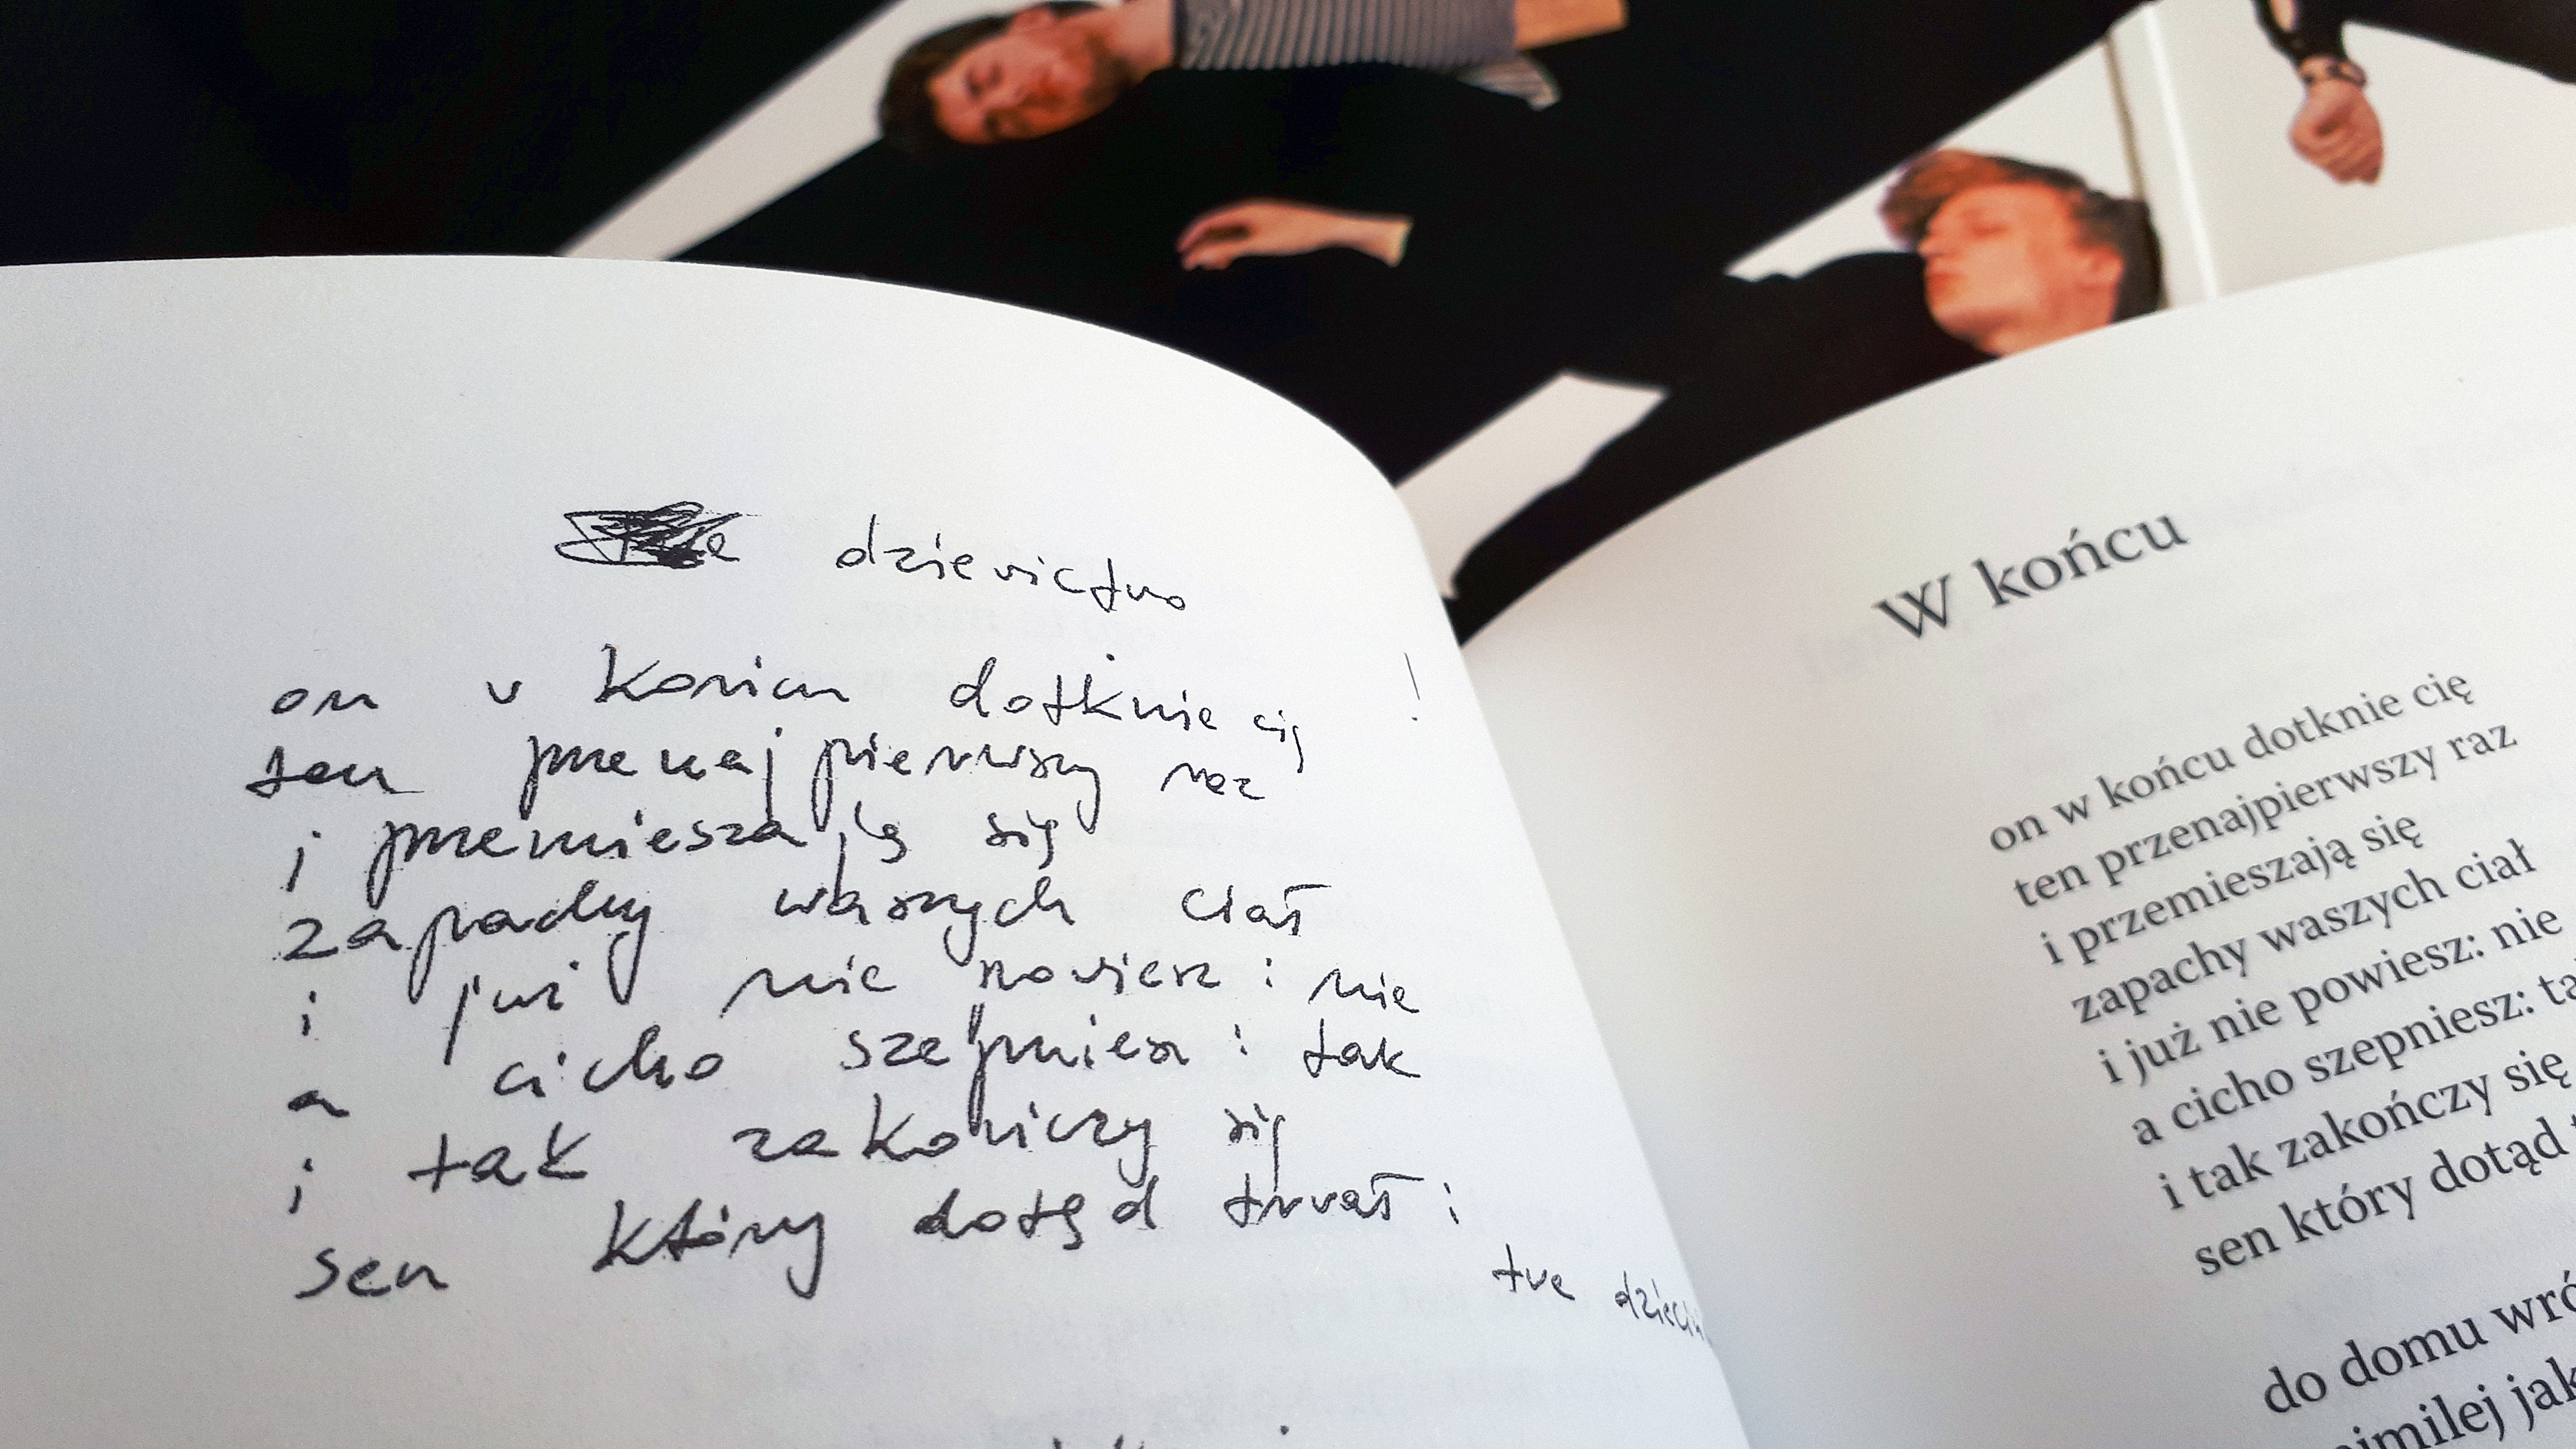 dziewictwo
on w końcu dotknie cię !
ten przenajpierwszy raz
i przemieszają się
zapachy waszych ciał
i już nie powiesz : nie
a cicho szepniesz : tak
i tak zakończy się
sen który dotąd trwał :
twe
W końcu
on w końcu dotknie cię
ten przenajpierwszy raz
i przemieszają się
zapachy waszych ciał
i już nie powiesz: nie
a cicho szepniesz:
i tak zakończy się
sen który dotąd
do domu
jak